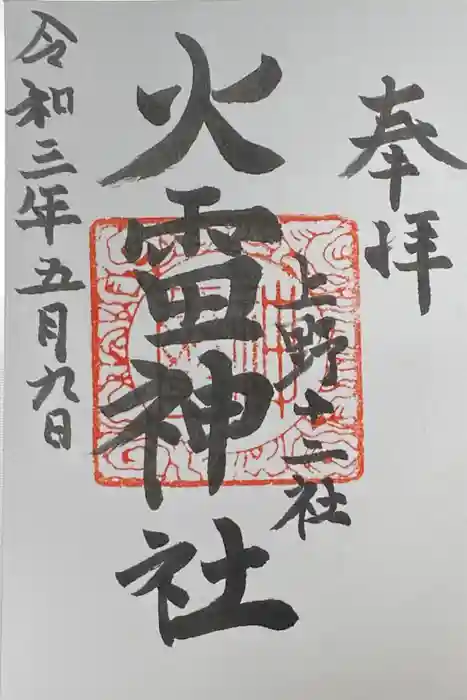 奉拝
上野十二社
火雷神社
令和三年五月九日